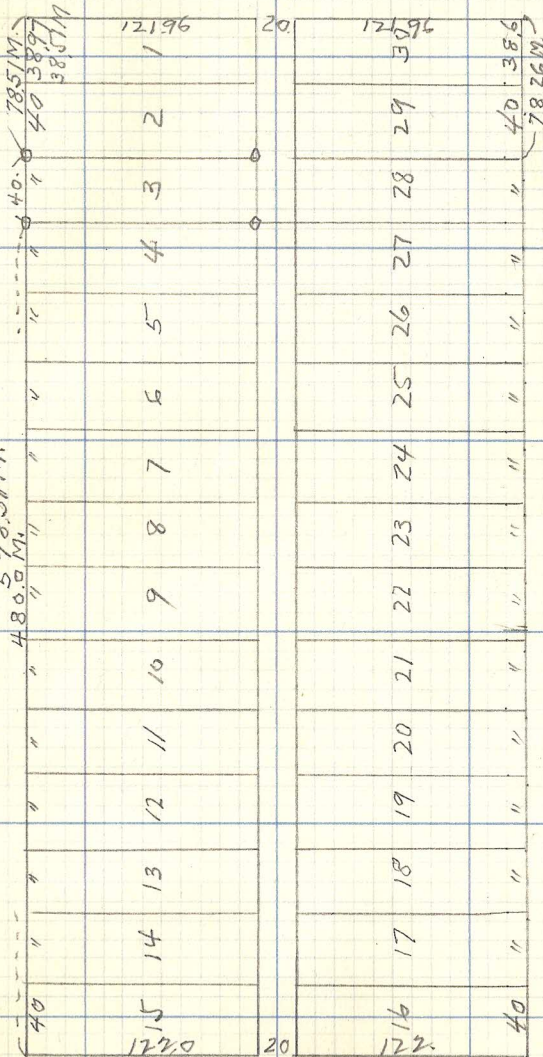 121.96 20 121.96
78.51 M. 40 38.97 1 30 38.6
38.51 M
40 2 29 40 78.26 M.
40. " 3 28 "
" 4 27 "
" 5 26 "
" 6 25 "
" 7 24 "
480.0 M. " 8 23 "
" 9 22 "
" 10 21 "
" 11 20 "
" 12 19 "
" 13 18 "
" 14 17 "
40 15 16 40
20 122